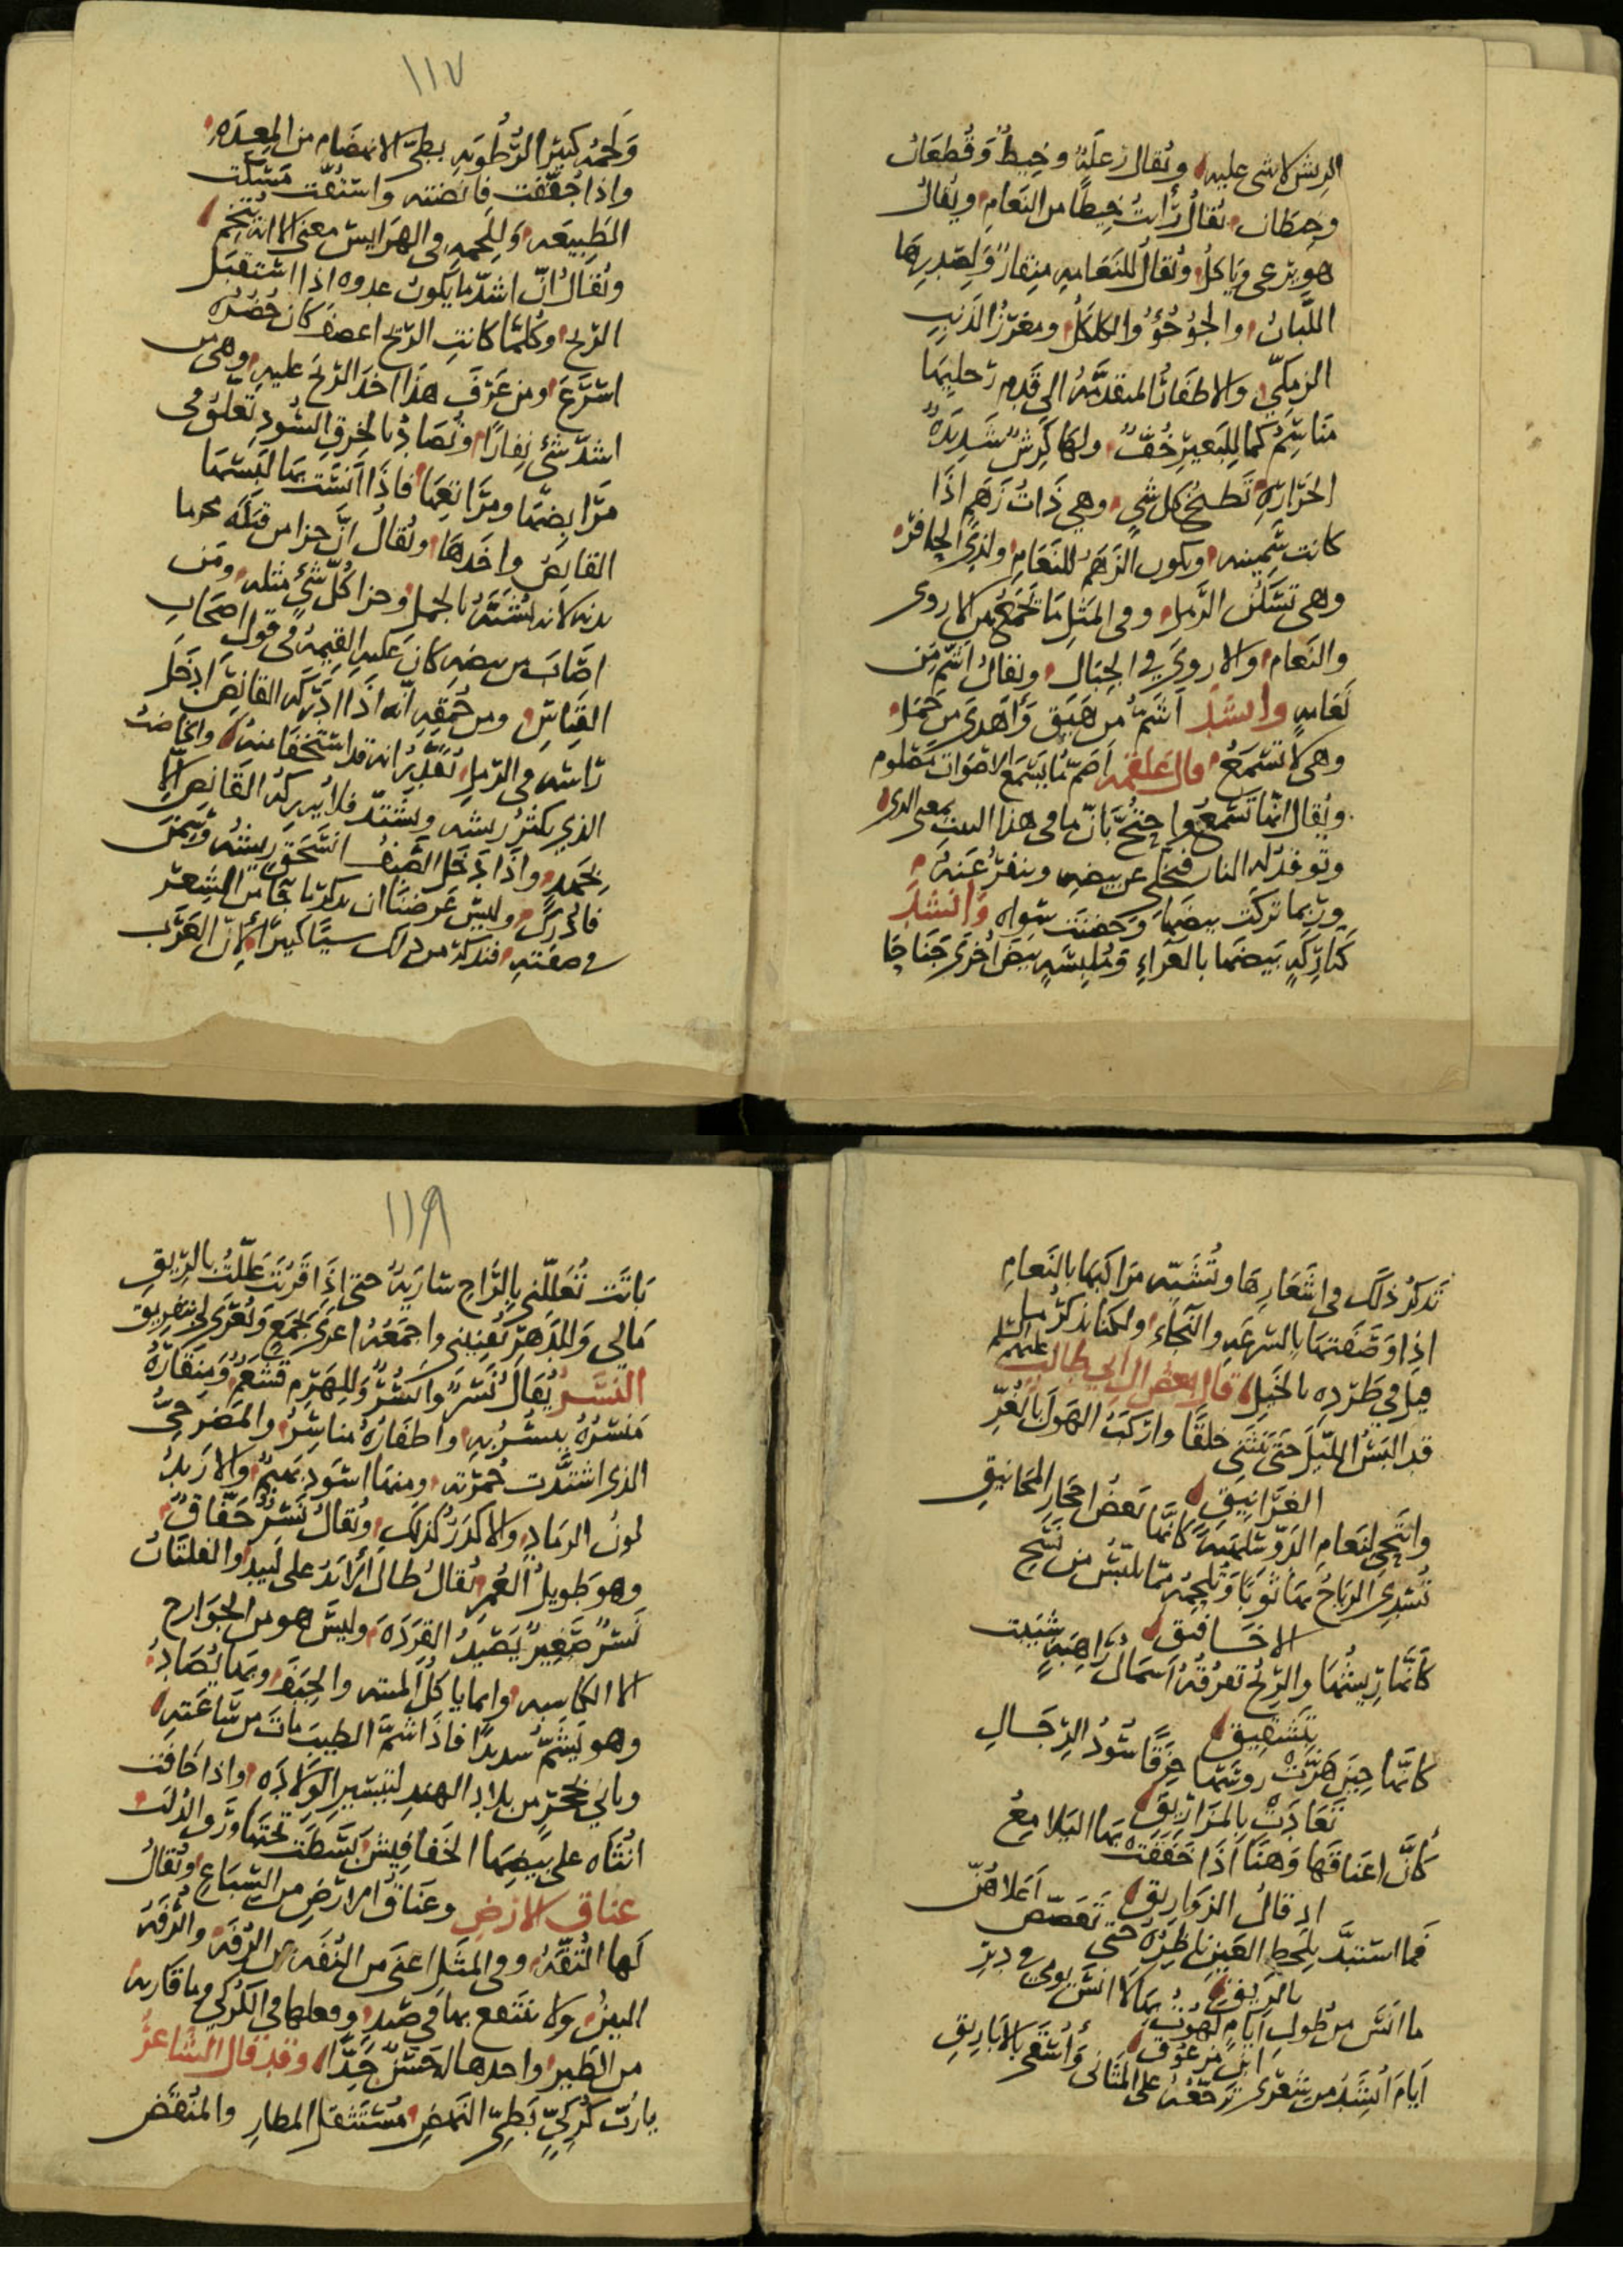 الريش لا شى عليه ويُقال رَعلَةٌ وخِيطٌ وَقُطعَانٌ
وخِيطَان يُقالُ رَأيتُ خِيطًا من النَعامِ ويُقالُ
هو يرعى وَيَاكلُ ويُقالُ للنَعَامهِ مِنقارٌ وَلِصَدرِهَا
اللَّبَانُ والجؤجُؤُ والكلكَلُ ومغرَزُ الذَنَبِ
الزمكّى والاظفَارُ المتقدّمَهُ الى قَدم رجليها
مَنَاسِمُ كما للبَعيرِ خُفٌّ ولها كَرِشٌ شَدِيدَةُ
الحَرَارَةِ تَطبخُ كل شىٍ وهى ذَاتُ زَهَمٍ اذَا
كانت سَمِينه ويكون الزَهَمُ للنَعَامِ ولِذِى الحَافرِ
وهى تَسكُنُ الرَّمل وفى المَثلِ مَا تجمَعُ بين الاروى
والنَعَام والاروىَ فى الجِبَال ويقالُ اشَمُّ مِن
نَعَامهٍ وانشَدَ اشَمُّ من هَيقٍ وَأهدَى من جَمَل
وهى لا تسمَعُ قال عَلقَمه اصَمُّ مَا يَسمَعُ الاصوَاتَ مَصْلوم
ويُقالُ انَّها تَسمَعُ واحتجّ بَأنّ ما فى هذا البيت بمعنى الذى
وتوقَد له النار فيخلى عن بيضهِ وينفرُ عَنهُ
وربّما تركَت بيضَها وَحضنَت سِواه وَانشَدَ
كتَارِكَهٍ بَيضَها بالعَراءِ وَمُلبِسَهٍ بيضَ اُخرَى جَنَاحَا
١١٧
وَلحمُه كثير الرُّطُوبَهِ بطىُّ الانهضَام من المِعدَهِ
واذا جُفّفَت قانِصَته واستُفّت مَسَّكَت
الطَبيعَه وَلِلَحمهِ فى الهَرايس معنىً الا انه يُتخِمُ
ويُقالُ انّ اشدّ ما يَكون عدوه اذا استقبَل
الريح وكُلّمَا كانتِ الريح اعصَفَ كان حُضرُه
اسرَعَ ومن عَرَفَ هَذَا اخذَ الريحَ عليهِ وهى من
اشدّ شئٍ نِفارًا وتُصَادُ بالخِرَقِ السُود تعلق فى
القانِصُ واخَذَهَا ويُقالُ انّ جزا من قتَلَهُ محرما
بدنه لانه يُشبَهُ بالجمل وجزا كُلّ شئٍ مثله ومَن
اصَابَ من بيضهِ كانَ عَليهِ القيمهُ فى قول اصحَابِ
القيَاسِ ومن حُمقِهِ انّه اذَا ادرَكه القانِصُ ادخَلَ
رأسه فى الرّملِ تُقدّرُ انه قد استخفَا منهُ والخاضبُ
الذى يكثُر ريشه ويشتدّ فلا يُدركُه القَانِصُ الا
بجَهدٍ واذَا دخَلَ الصَّيفُ انسَحَقَ ريشُه وسمن
فادرَكَ وليسَ غَرضنَا ان نذكر ما جَا من الشِعرِ
فى صِفَتهِ فنذكر من ذلك شيئًا كثيرًا لانّ العَرَبَ
تَذكرُ ذلكَ فى اشعَارِهَا وتُشَبِّه مَرَاكبَها بالنَعامِ
اذا وَصَفتهَا بالسُرعَهِ والنَجَاء ولكنا نذكرُ ما
قيل فى طَردهِ بالخَيلِ قالَ بعض ال ابى طالب عليهم السلم
قد البَسُ اللّيلَ حَتى يَنثَنى خلقًا واركَبُ الهَولَ بالغُرِّ
الغرَانيقِ
وانتَحى لِنَعامِ الدَوّ مُلجَمَةً كانَّها بَعضُ احجَارِ المَجَانيقِ
تُسدِى الرياحُ بها ثوبًا وتُلحِمُه ممّا يلبّسُ من نسج
الاخَافيقِ
كَأنَّما رِيشُها والرِّيحُ تفرُقهُ اسمَالُ رَاهِبهٍ شيبَت
بتَشقِيقِ
كانّما حِينَ هَزَّت روسَها حِزَقًا سُودُ الرِجَالِ
تَعَادَت بالمزَارِيقِ
كَأنَّ اعنَاقَهَا وَهنًا اذَا خَفَقَت بها البَلامِعُ
ادقالُ الزوَارِيقِ
فما استبَدَّ بلَحظِ العَينِ ناظرُهُ حتى تَغَصّصَ اَعلاهُنّ
بالرِيقِ
ما انسَ من طُولِ ايّامٍ لَهوتُ بها لا انسَ يومى فى دير
ابن مرعُوقِ
ايَامَ اُنشَدُ من شعرى تُرجّعهُ على المَثَانى وَأُسقى بالابَارِيقِ
١١٨
بَاتَت تُعَلّلُنى بالرَّاحِ سَارِيَةً حتى اذَا قَرُبَت عَلّلتُ بالرِّيقِ
مَالى وللدهرِ يُغرِينى واجمَعُهُ اُغرَى بجَمعٍ وَيُغرَى بى بتفريقِ
النسر يُقالُ نَسرٌ وانسُرٌ وَللهَرِم قَشعَمٌ وَمِنقَارُهُ
مَنسِرُهُ ينسُرُ بهِ واظفَارُهُ مَناسِرُ والمَضرحِىُّ
الذى اشتدَّت حُمرَته ومنها اسوَد بَهيمٌ والاربَدُ
لونُ الرمَادِ والاكدَرُ كذلَكِ ويُقالُ نَسرٌ خَفّاقٌ
وهو طَوِيلُ العُمرِ يُقالُ طَالَ الابَدُ على لُبَدٍ والفلتَانُ
نَسرٌ صَغِيرٌ يَصيدُ القِرَدَهَ وليسَ هو من الجَوَارح
الا الكاسبه وانما ياكل الميته والجِيَفَ وبها يُصَادُ
وهو يَشُمُّ شديدًا فاذَا شمّ الطيبَ ماتَ من سَاعَتهِ
وياتى بحجَرٍ من بلاد الهندِ لتيسير الوِلادَه واذا خَافَت
انثَاه على بيضِها الخَفافيش بَسَطَت تحتها ورَق الدُلب
عناق الارض وعَنَاقُ الارَضِ من السِّبَاعِ ويُقالُ
لَها التُفَّهُ وفى المثَلِ اغنى من التُفَه عن الرُفَه والرُفَهُ
التِبنُ ولا ينتفع بها فى صَيدٍ وفعلها فى الكركى وما قاربه
من الطَير واخذها له حَسَنٌ جَدًّا وقد قال الشاعرُ
يا رُبّ كُركىٍّ بَطىِّ النَهضِ مُستَثقلِ المطارِ والمُنقَضِ